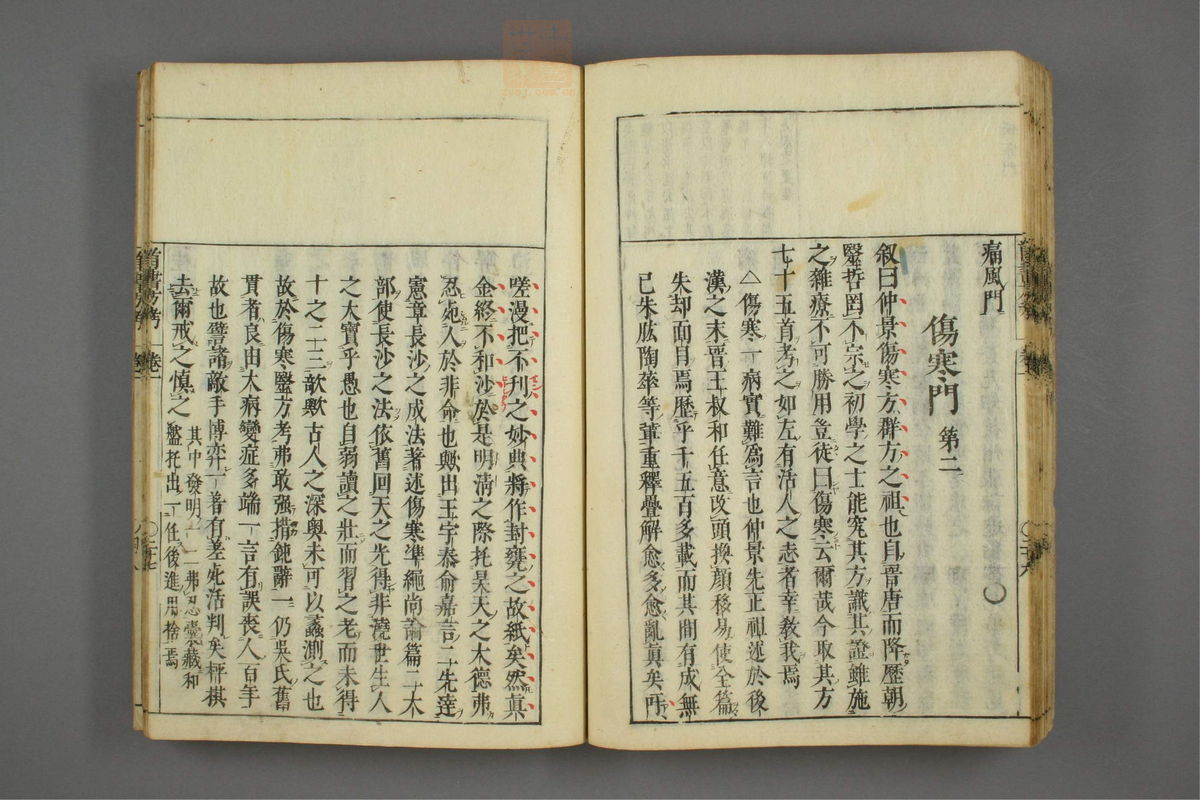 痛風門
傷寒門 第二
叙曰仲景傷寒方群方之祖也自晉唐而降歷朝
毉哲罔不宗之初學之士能究其方識其證雖施
之雜療不可勝用豈徒曰傷寒云爾哉今取其方
七十五首考之如左有活人之志者幸敎我焉
△傷寒一病實難爲言也仲景先正祖述於後
漢之末晉王叔和任意改頭換顔移易使全篇
失却面目焉歷乎千五百多載而其間有成無
已朱肱陶華等軰重釋疊解愈多愈亂眞矣吁
嗟漫把不刋之妙典將作封甕之故紙矣然眞
金終不和沙於是明淸之際托昊天之大德弗
忍死人於非命也歟出王宇泰俞嘉言二先達
憲章長沙之成法著述傷寒準繩尚論篇二大
部使長沙之法依舊回天之先得非澆世生人
之大寶乎愚也自弱讀之壯而習之老而未得
十之二三歆歟古人之深奥未可以蠡測之也
故於傷寒毉方考弗敢强措鈍辭一仍吳氏舊
貫者良由大病變症多端一言有誤喪人百年
故也譬諸敵手博弈一著有差死活判矣枰棋
去爾戒之愼之
其中發明一一弗忍囊藏和
盤托出一任後進用捨焉
卷一